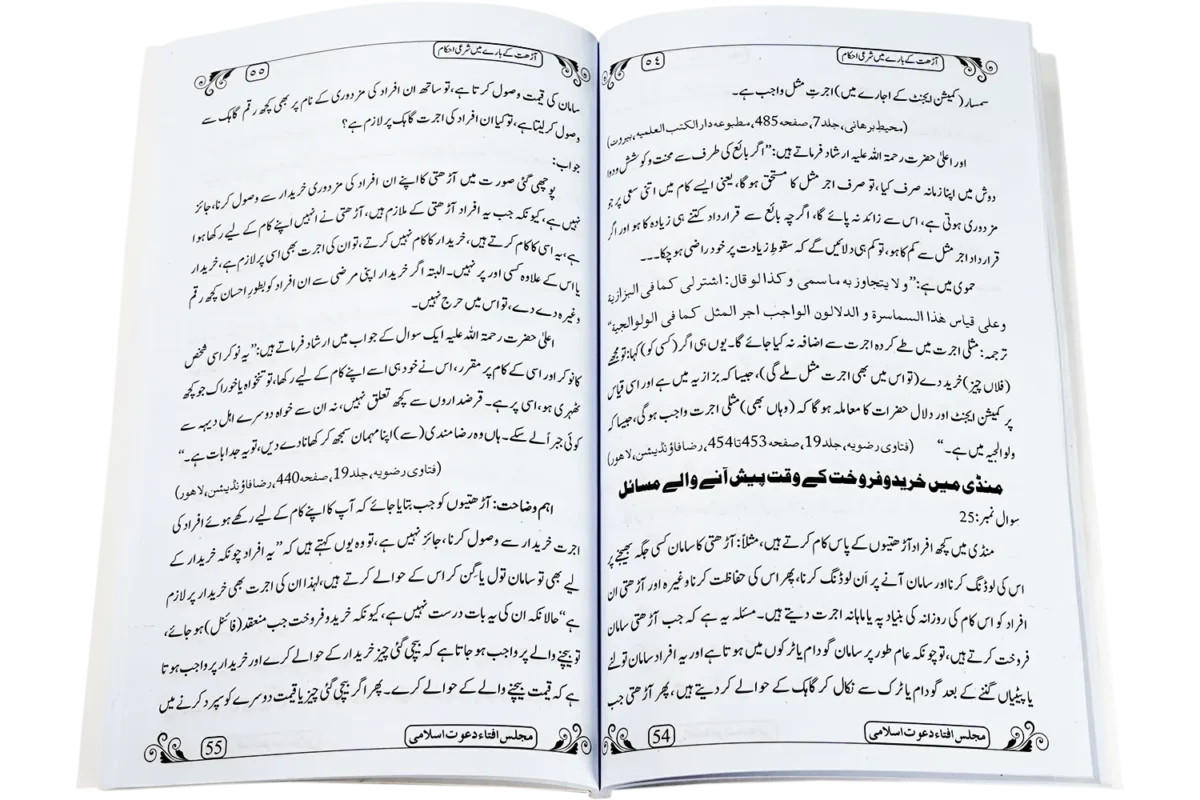 آڑھت کے بارے میں شرعی احکام
٥٤
سمسار (کمیشن ایجنٹ کے اجارے میں) اجرتِ مثل واجب ہے۔
(محیط برھانی، جلد 7، صفحہ 485، مطبوعہ دار الکتب العلمیہ، بیروت)
اور اعلیٰ حضرت رحمۃ اللہ علیہ ارشاد فرماتے ہیں: ”اگر بائع کی طرف سے محنت و کوشش و دوا
دوش میں اپنا زمانہ صرف کیا، تو صرف اجر مثل کا مستحق ہو گا، یعنی ایسے کام میں اتنی سعی پر جو
مزدوری ہوتی ہے، اس سے زائد نہ پائے گا، اگرچہ بائع سے قرارداد کتنے ہی زیادہ کا ہو اور اگر
قرارداد اجر مثل سے کم کا ہو، تو کم ہی دلائیں گے کہ سقوطِ زیادت پر خود راضی ہو چکا۔۔۔
حموی میں ہے: ”ولا یتجاوز بہ ما سمی وکذا لو قال: اشتر لی کما فی البزازیۃ
وعلی قیاس ھذا السماسرۃ و الدلالون الواجب اجر المثل کما فی الولوالجیۃ“
ترجمہ: مثلی اجرت میں طے کردہ اجرت سے اضافہ نہ کیا جائے گا۔ یوں ہی اگر (کسی کو) کہا: تو مجھے
(فلاں چیز) خرید دے (تو اس میں بھی اجرت مثل ملے گی)، جیسا کہ بزازیہ میں ہے اور اسی قیاس
پر کمیشن ایجنٹ اور دلال حضرات کا معاملہ ہو گا کہ (وہاں بھی) مثلی اجرت واجب ہو گی، جیسا کہ
ولوالجیہ میں ہے۔“ (فتاوی رضویہ، جلد 19، صفحہ 453 تا 454، رضا فاؤنڈیشن، لاھور)
منڈی میں خرید و فروخت کے وقت پیش آنے والے مسائل
سوال نمبر: 25
منڈی میں کچھ افراد آڑھتیوں کے پاس کام کرتے ہیں، مثلاً: آڑھتی کا سامان کسی جگہ بھیجنے پر
اس کی لوڈنگ کرنا اور سامان آنے پر اَن لوڈنگ کرنا، پھر اس کی حفاظت کرنا وغیرہ اور آڑھتی ان
افراد کو اس کام کی روزانہ کی بنیاد پہ یا ماہانہ اجرت دیتے ہیں۔ مسئلہ یہ ہے کہ جب آڑھتی سامان
فروخت کرتے ہیں، تو چونکہ عام طور پر سامان گودام یا ٹرکوں میں ہوتا ہے اور یہ افراد سامان تولنے
یا پیٹیاں گننے کے بعد گودام یا ٹرک سے نکال کر گاہک کے حوالے کر دیتے ہیں، پھر آڑھتی جب
مجلس افتاء دعوت اسلامی
54
آڑھت کے بارے میں شرعی احکام
٥٥
سامان کی قیمت وصول کرتا ہے، تو ساتھ ان افراد کی مزدوری کے نام پر بھی کچھ رقم گاہک سے
وصول کر لیتا ہے، تو کیا ان افراد کی اجرت گاہک پر لازم ہے؟
جواب:
پوچھی گئی صورت میں آڑھتی کا اپنے ان افراد کی مزدوری خریدار سے وصول کرنا، جائز
نہیں ہے، کیونکہ جب یہ افراد آڑھتی کے ملازم ہیں، آڑھتی نے انہیں اپنے کام کے لیے رکھا ہوا
ہے، یہ اسی کا کام کرتے ہیں، خریدار کا کام نہیں کرتے، تو ان کی اجرت بھی اسی پر لازم ہے، خریدار
یا اس کے علاوہ کسی اور پر نہیں۔ البتہ اگر خریدار اپنی مرضی سے ان افراد کو بطورِ احسان کچھ رقم
وغیرہ دے دے، تو اس میں حرج نہیں۔
اعلیٰ حضرت رحمۃ اللہ علیہ ایک سوال کے جواب میں ارشاد فرماتے ہیں: ”یہ نوکر اسی شخص
کا نوکر اور اسی کے کام پر مقرر، اس نے خود ہی اسے اپنے کام کے لیے رکھا، تو تنخواہ یا خوراک جو کچھ
ٹھہری ہو، اسی پر ہے۔ قرضداروں سے کچھ تعلق نہیں، نہ ان سے خواہ دوسرے اہل دیہہ سے
کوئی جبراً لے سکے۔ ہاں وہ رضامندی (سے) اپنا مہمان سمجھ کر کھانا دے دیں، تو یہ جدا بات ہے۔“
(فتاوی رضویہ، جلد 19، صفحہ 440، رضا فاؤنڈیشن، لاھور)
اہم وضاحت: آڑھتیوں کو جب بتایا جائے کہ آپ کا اپنے کام کے لیے رکھے ہوئے افراد کی
اجرت خریدار سے وصول کرنا، جائز نہیں ہے، تو وہ یوں کہتے ہیں کہ ”یہ افراد چونکہ خریدار کے
لیے بھی تو سامان تول یا گِن کر اس کے حوالے کرتے ہیں، لہٰذا ان کی اجرت بھی خریدار پر لازم
ہے“ حالانکہ ان کی یہ بات درست نہیں ہے، کیونکہ خرید و فروخت جب منعقد (فائنل) ہو جائے،
تو بیچنے والے پر واجب ہو جاتا ہے کہ بیچی گئی چیز خریدار کے حوالے کرے اور خریدار پر واجب ہوتا
ہے کہ قیمت بیچنے والے کے حوالے کرے۔ پھر اگر بیچی گئی چیز یا قیمت دوسرے کو سپرد کرنے میں
مجلس افتاء دعوت اسلامی
55